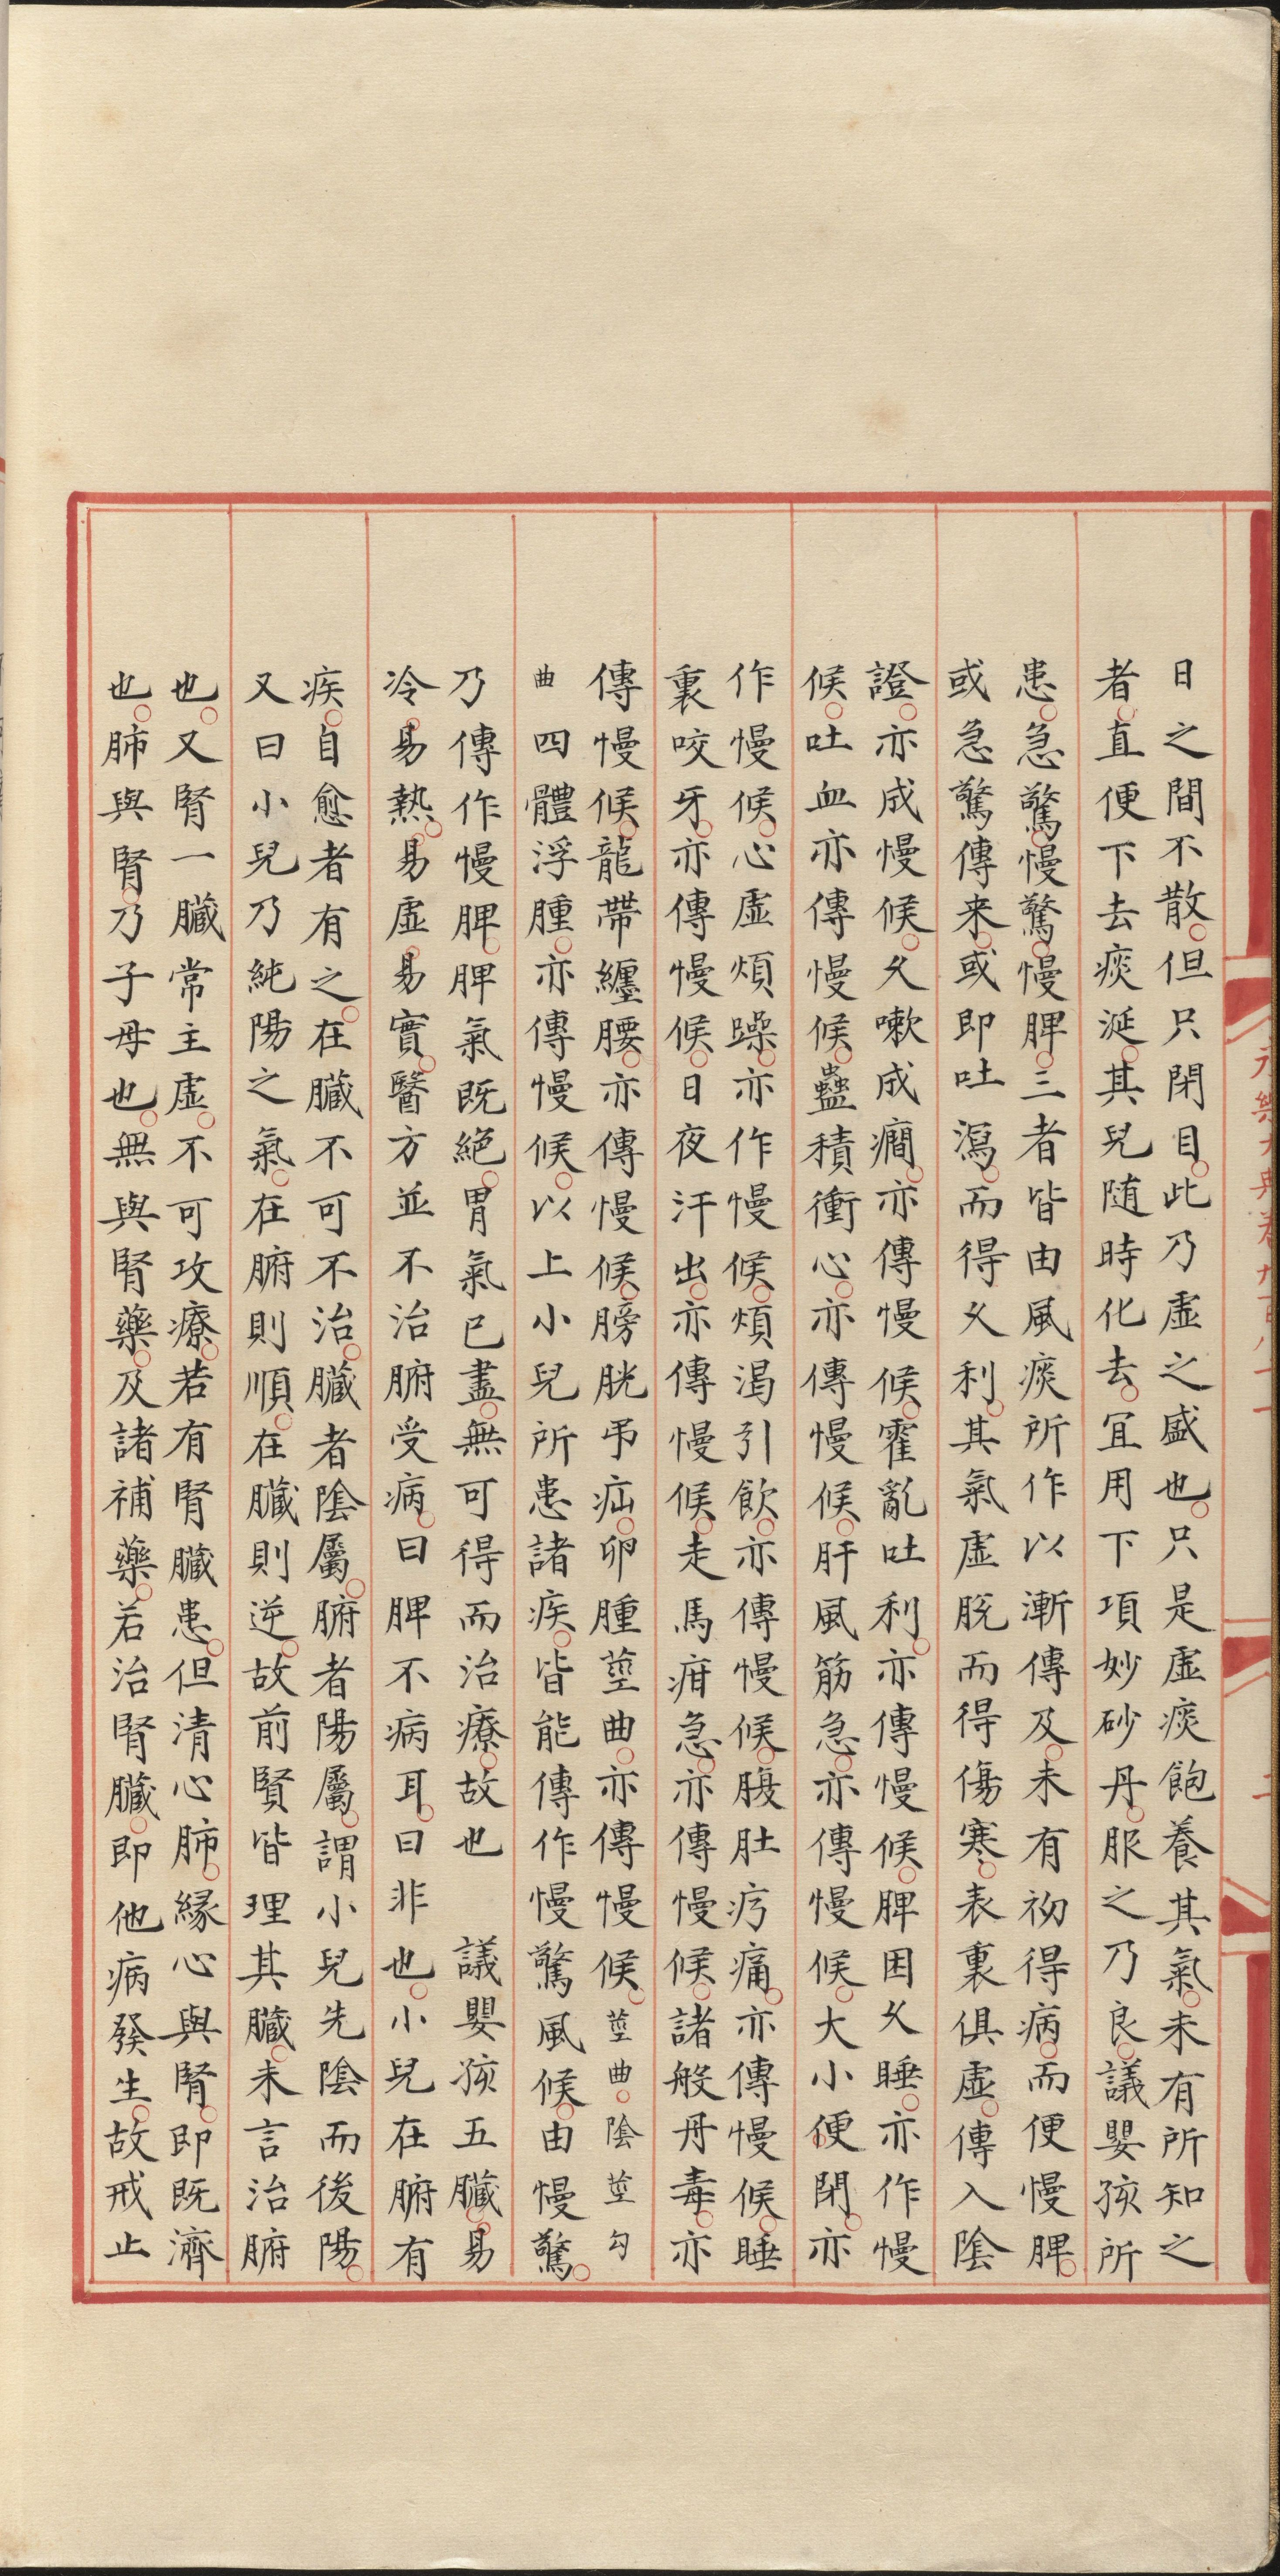 日之間不散但只閉目此乃虛之盛也只是虛痰飽養其氣未有所知之
者直便下去痰涎其兒随時化去宜用下項妙砂丹服之乃良議嬰孩所
患急驚慢驚慢脾三者皆由風痰所作以漸傳及未有初得病而便慢脾
或急驚傳来或即吐瀉而得久利其氣虛脫而得傷寒表裏俱虛傳入陰
證亦成慢候久嗽成癇亦傳慢候霍亂吐利亦傳慢候脾困久睡亦作慢
候吐血亦傳慢候蠱積衝心亦傳慢候肝風筋急亦傳慢候大小便閉亦
作慢候心虛煩躁亦作慢候煩渴引飲亦傳慢候腹肚疞痛亦傳慢候睡
裏咬牙亦傳慢候日夜汗出亦傳慢候走馬疳急亦傳慢候諸般丹毒亦
傳慢候龍帶纏腰亦傳慢候膀胱弔疝卵腫莖曲亦傳慢候莖曲陰莖勾
曲四體浮腫亦傳慢候以上小兒所患諸疾皆能傳作慢驚風候由慢驚
乃傳作慢脾脾氣既絕胃氣已盡無可得而治療故也 議嬰孩五臟易
冷易熱易虛易實醫方並不治腑受病曰脾不病耳曰非也小兒在腑有
疾自愈者有之在臟不可不治臟者陰屬腑者陽屬謂小兒先陰而後陽
又曰小兒乃純陽之氣在腑則順在臟則逆故前賢皆理其臟未言治腑
也又腎一臟常主虛不可攻療若有腎臟患但清心肺緣心與腎即既濟
也肺與腎乃子母也無與腎藥及諸補藥若治腎臟即他病發生故戒止